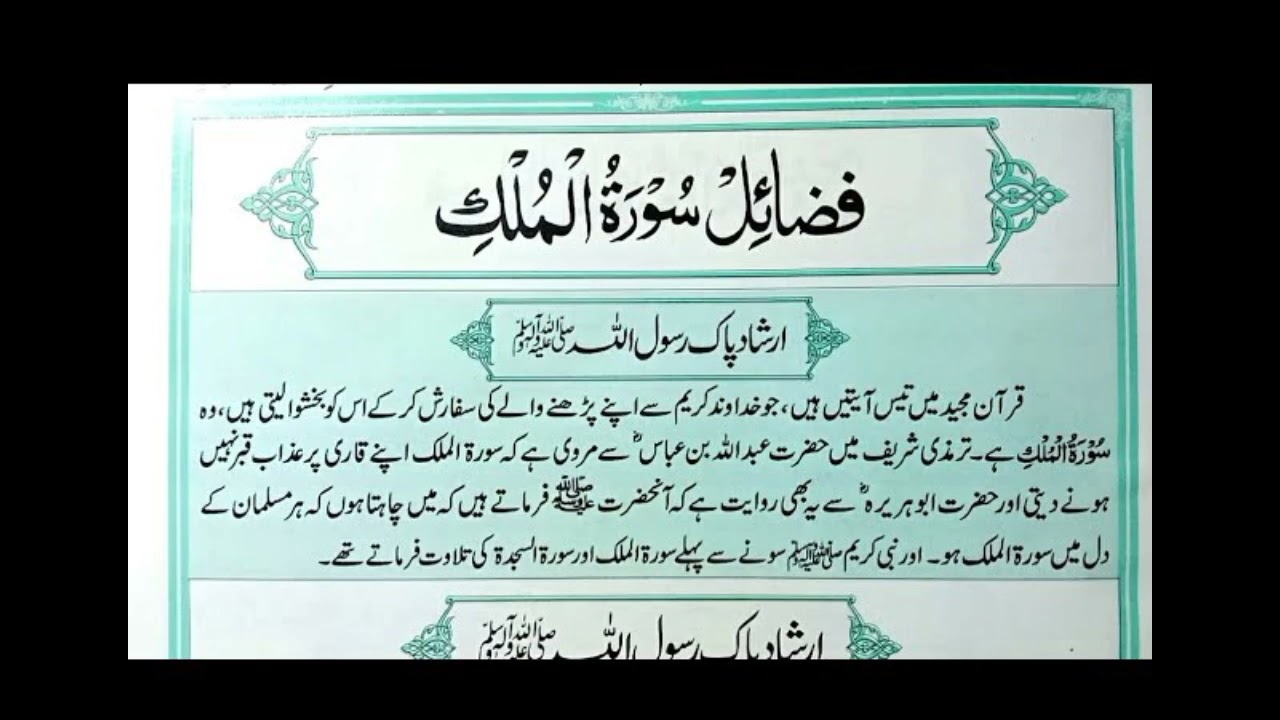 فضائِلْ سُوْرَةُ الْمُلْكِ
ارشاد پاک رسول اللہ ﷺ
قرآن مجید میں تیس آیتیں ہیں، جو خداوند کریم سے اپنے پڑھنے والے کی سفارش کر کے اس کو بخشوا لیتی ہیں، وہ
سُوْرَةُ الْمُلْكِ ہے۔ ترمذی شریف میں حضرت عبداللہ بن عباسؓ سے مروی ہے کہ سورۃ الملک اپنے قاری پر عذاب قبر نہیں
ہونے دیتی اور حضرت ابوہریرہؓ سے یہ بھی روایت ہے کہ آنحضرت ﷺ فرماتے ہیں کہ میں چاہتا ہوں کہ ہر مسلمان کے
دل میں سورۃ الملک ہو۔ اور نبی کریم ﷺ سونے سے پہلے سورۃ الملک اور سورۃ السجدۃ کی تلاوت فرماتے تھے۔
ارشاد پاک رسول اللہ ﷺ